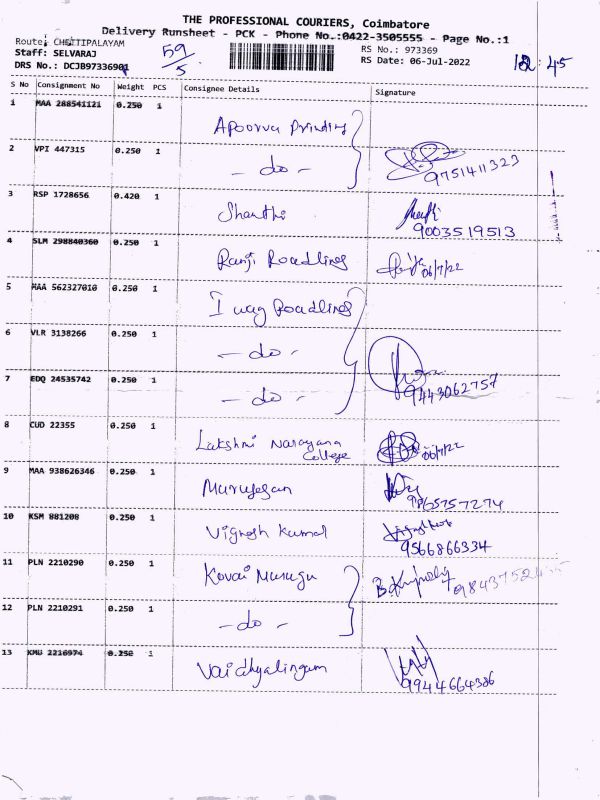 THE PROFESSIONAL COURIERS, Coimbatore
Delivery Runsheet - PCK - Phone No.:0422-3505555 - Page No.:1
Route: CHETTIPALAYAM
Staff: SELVARAJ
DRS No.: DCJB97336901
59/5
RS No.: 973369
RS Date: 06-Jul-2022
12:45
S No Consignment No Weight PCS Consignee Details Signature
1 MAA 288541121 0.250 1 Apoorva Printing
2 VPI 447315 0.250 1 - do - 9751411323
3 RSP 1728656 0.420 1 Shanthi 9003519513
4 SLM 298840360 0.250 1 Ranji Roadlines 06/7/22
5 MAA 562327010 0.250 1 I way Roadlines
6 VLR 3138266 0.250 1 - do -
7 EDQ 24535742 0.250 1 - do - 9443062757
8 CUD 22355 0.250 1 Lakshmi Narayana College 06/7/22
9 MAA 938626346 0.250 1 Murugesan 9865757274
10 KSM 881208 0.250 1 Vignesh Kumar 9566866334
11 PLN 2210290 0.250 1 Kovai Murugu
12 PLN 2210291 0.250 1 - do -
13 KMU 2216974 0.250 1 Vaidhyalingam 9944664386